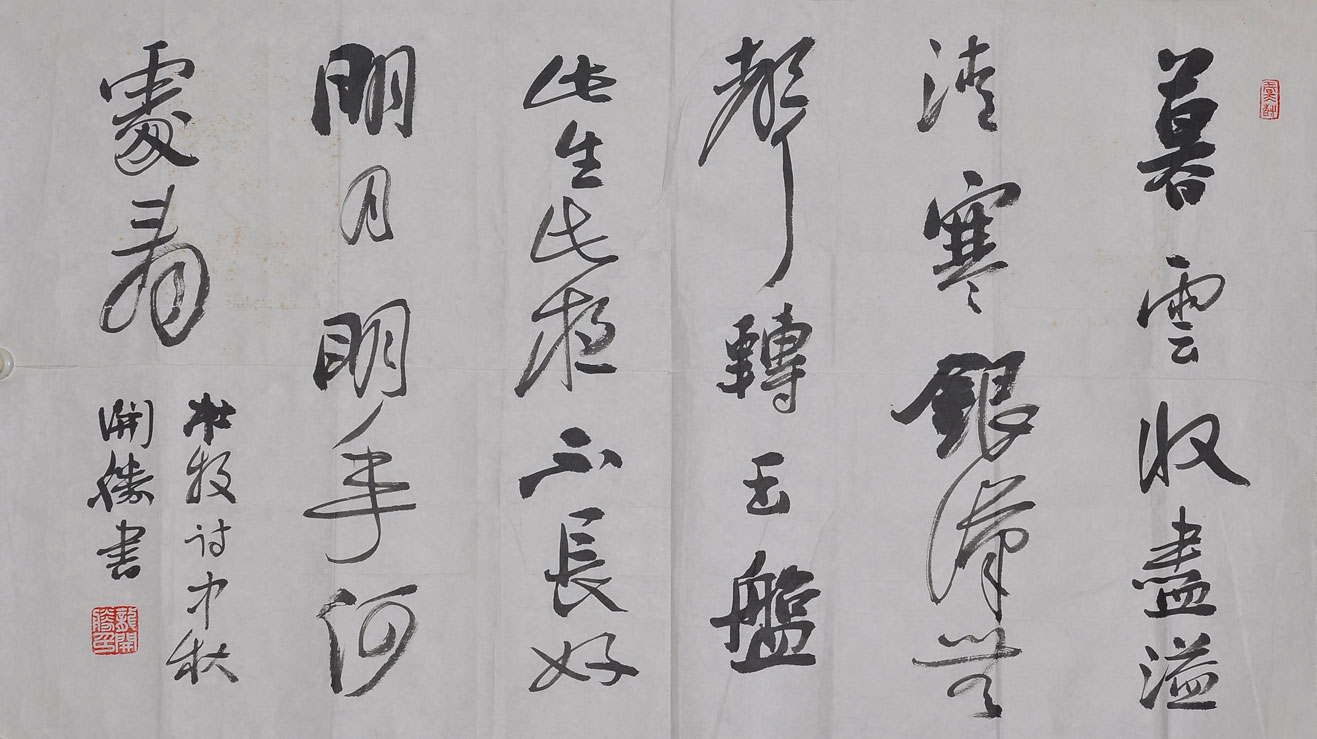 暮雲收盡溢
清寒銀漢無
聲轉玉盤
此生此夜不長好
明月明年何
處看
杜牧诗中秋
開勝書
龍開勝印